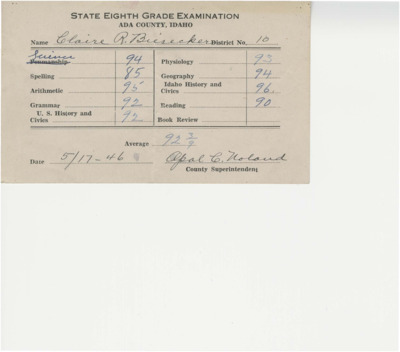 STATE EIGHTH GRADE EXAMINATION
ADA COUNTY, IDAHO
Name Claire R. Biesecker District No. 10
Science 94 Physiology 93
Spelling 85 Geography 94
Arithmetic 95 Idaho History and Civics 96
Grammar 92 Reading 90
U. S. History and Civics 92 Book Review
Average 92 3/9
Date 5/17-46 Opal C. Noland
County Superintendent